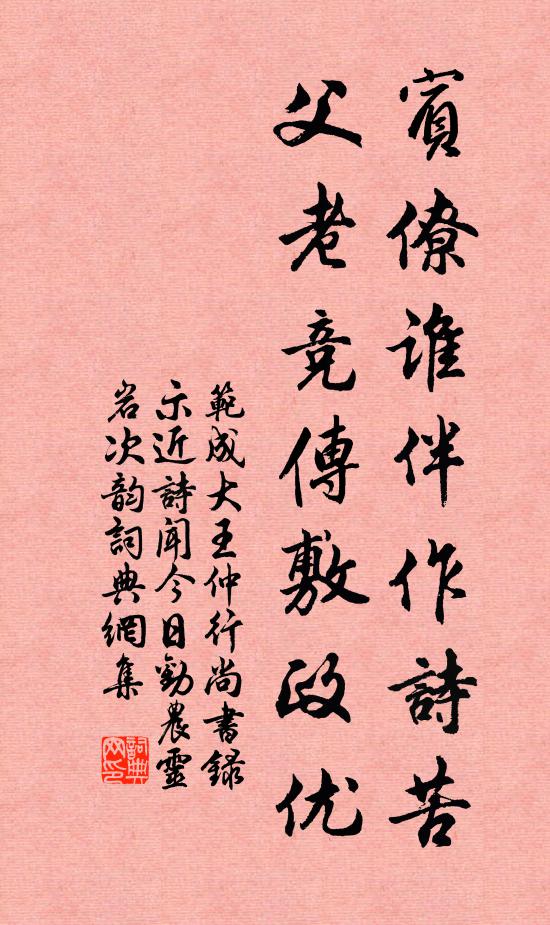 賓僚誰伴作詩苦
父老竞傳敷政优
範成大王仲行尚書録
示近詩聞今日勸農靈
岩次韵詞典網集
詞典网印